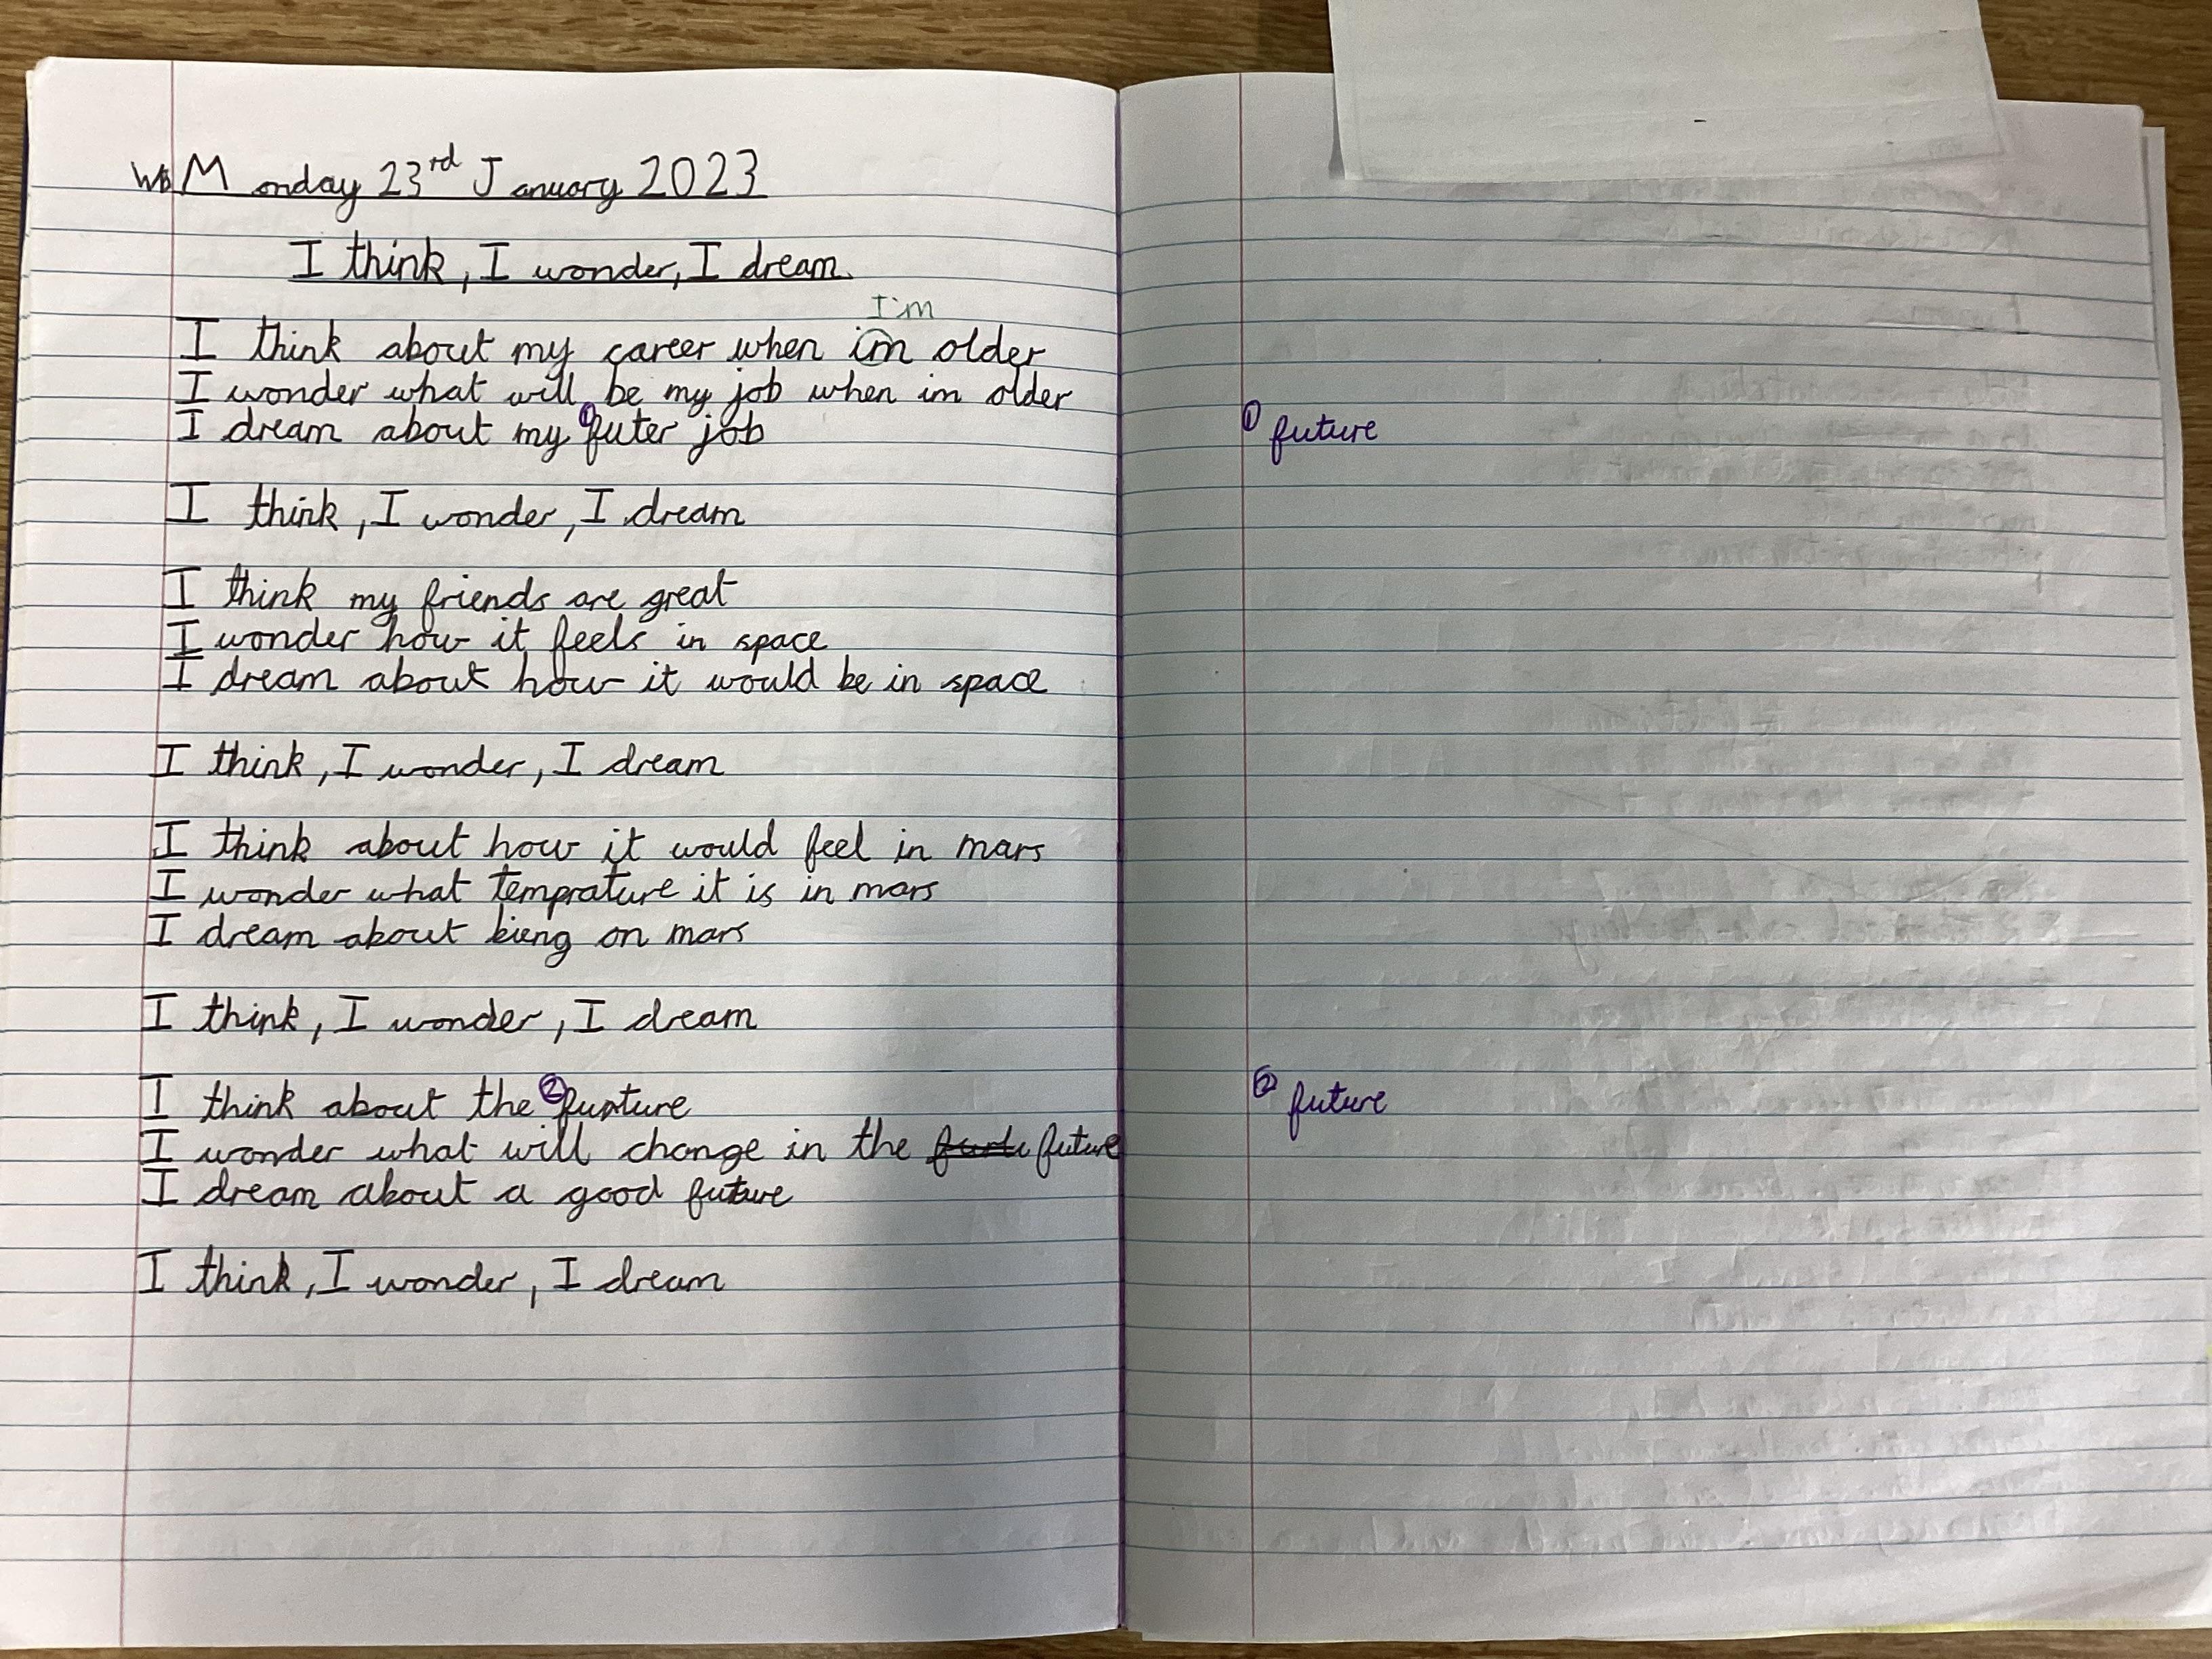 WB Monday 23rd January 2023
I think, I wonder, I dream.
I'm
I think about my career when im older
I wonder what will be my job when im older
I dream about my ① futer job
① future
I think, I wonder, I dream
I think my friends are great
I wonder how it feels in space
I dream about how it would be in space
I think, I wonder, I dream
I think about how it would feel in mars
I wonder what temprature it is in mars
I dream about bieng on mars
I think, I wonder, I dream
I think about the ② fupture
② future
I wonder what will change in the future
I dream about a good future
I think, I wonder, I dream